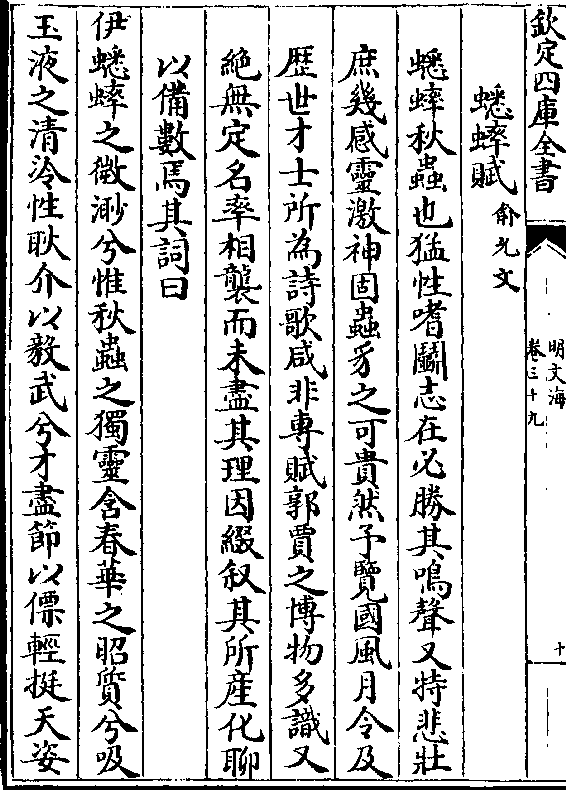 欽定四庫全書
明文海
卷三十九
十
蟋蟀賦 俞允文
蟋蟀秋蟲也猛性嗜鬬志在必勝其鳴聲又特悲壯
庶幾感靈激神固蟲豸之可貴然予覽國風月令及
歴世才士所為詩歌咸非專賦郭賈之博物多識又
絶無定名率相襲而未盡其理因綴叙其所産化聊
以備數焉其詞曰
伊蟋蟀之微渺兮惟秋蟲之獨靈含春華之昭質兮吸
玉液之清泠性耿介以毅武兮才盡節以僄輕挺天姿